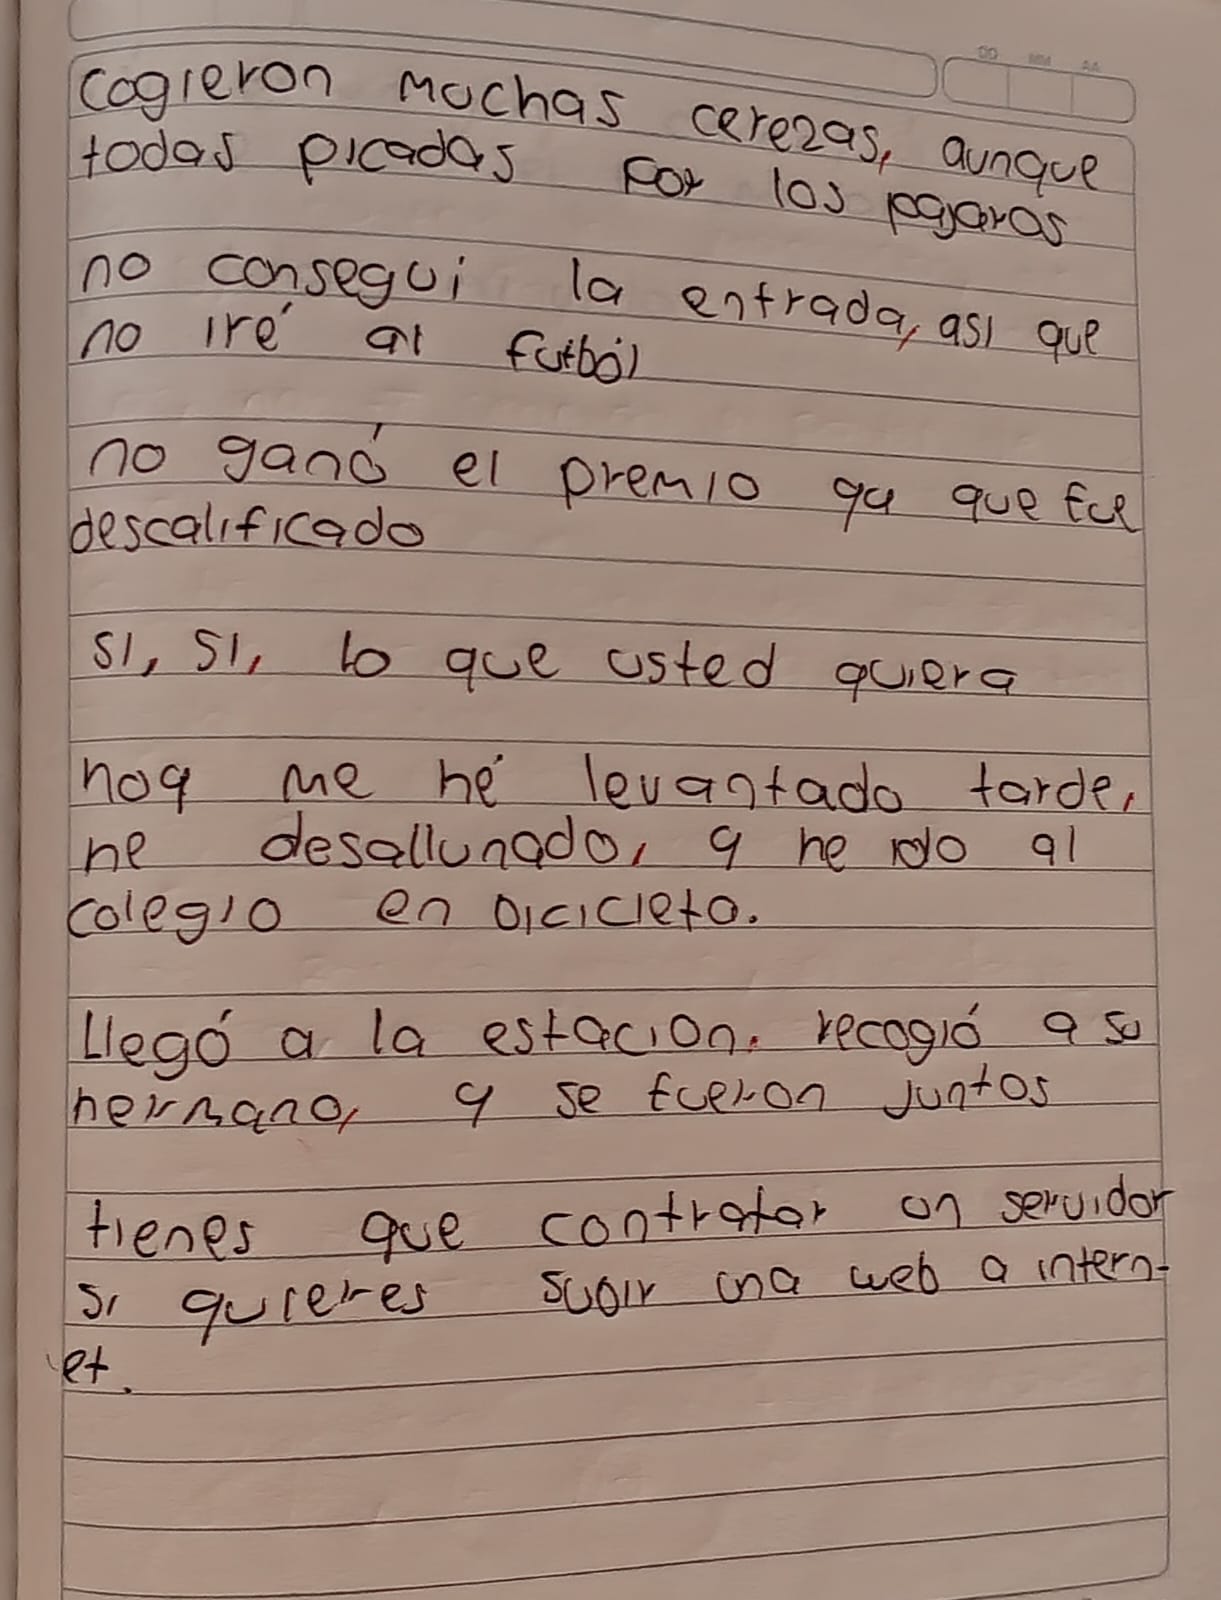 DD MM AA
cogieron muchas cerezas, aunque
todas picadas por los pajaros
no consegui la entrada, asi que
no iré al futból
no ganó el premio ya que fue
descalificado
si, si, lo que usted quiera
hoy me hé levantado tarde,
he desallunado, y he ido al
colegio en bicicleta.
Llegó a la estación. recogió a su
hermano, y se fueron juntos
tienes que contratar un servidor
si quieres subir una web a intern-
et.